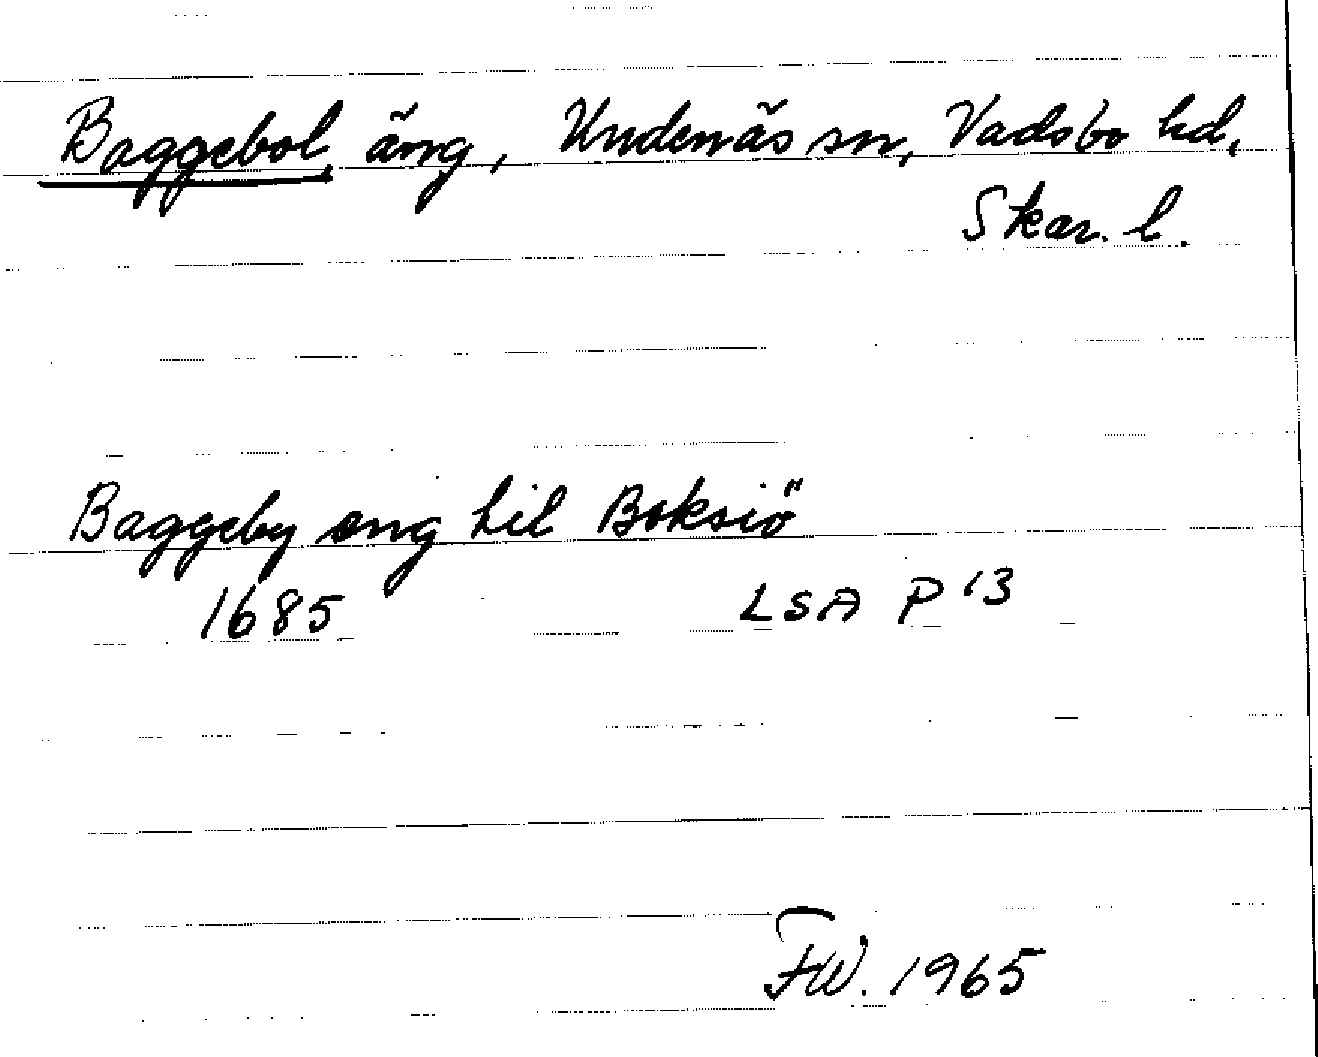 Baggebol, äng, Undenäs sn, Vadsbo hd,
Skar. l.
Baggeby eng til Boksiö
1685 LSA P 13
FW. 1965